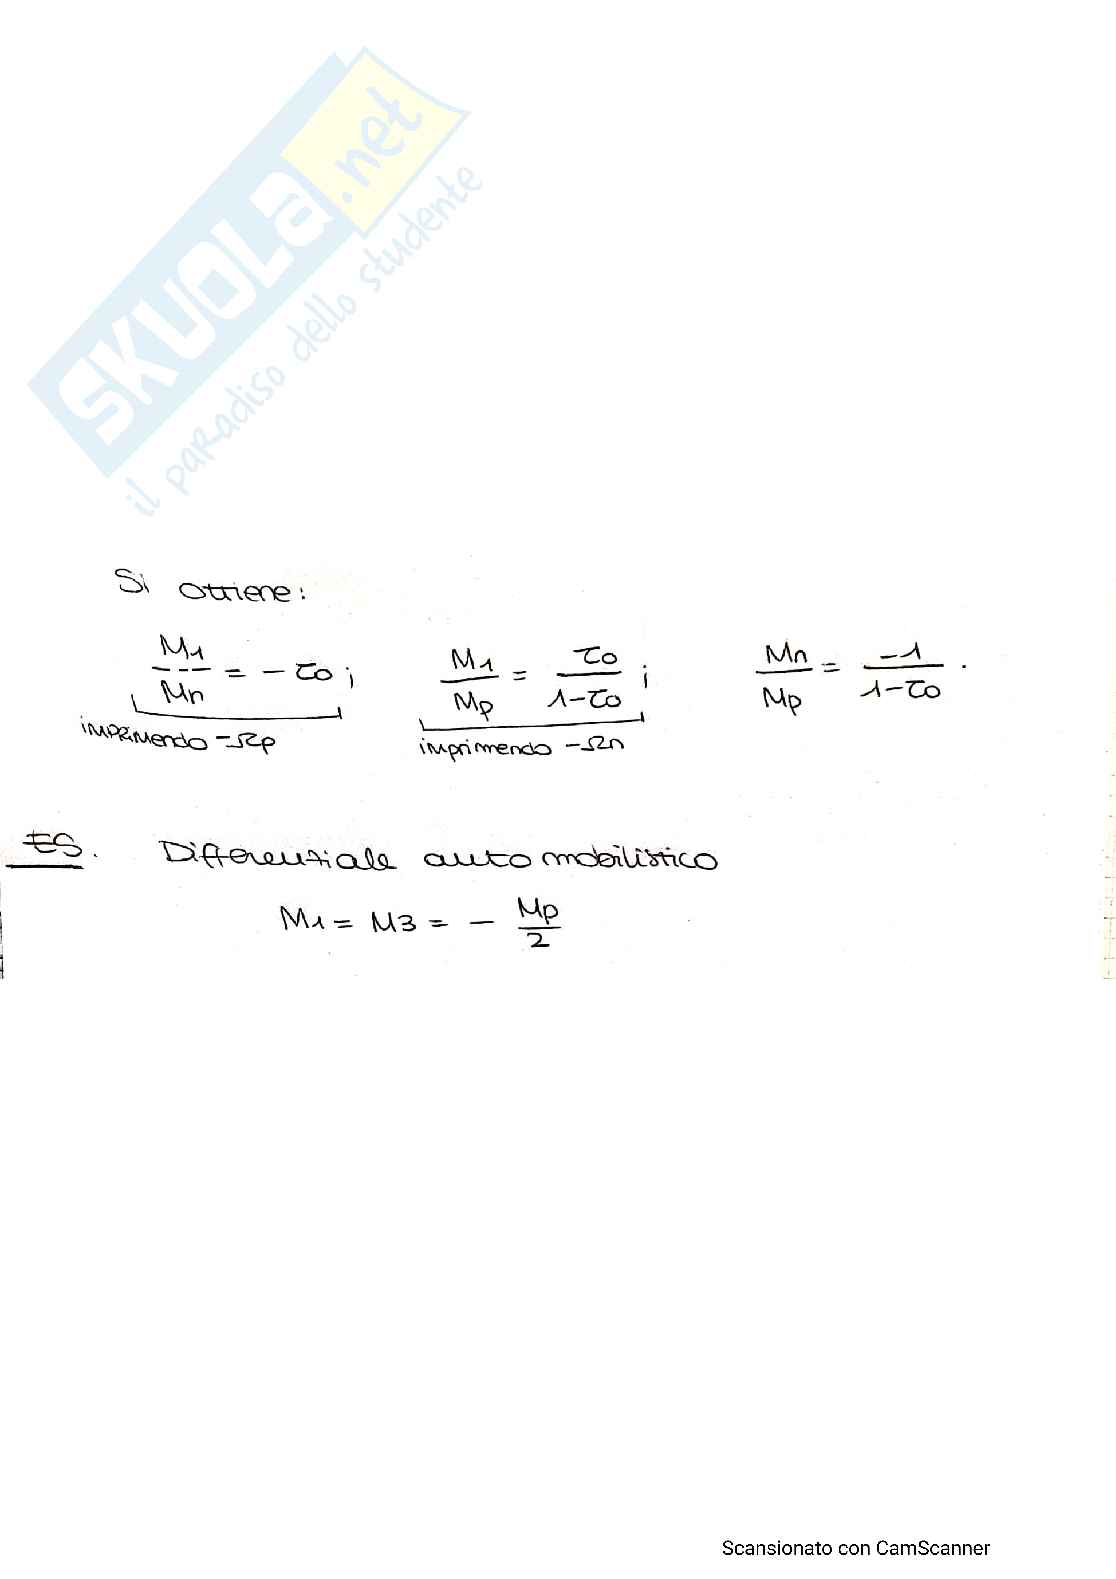 SKUOLA.net
il paradiso dello studente
Si ottiene:
M1/Mn = - τ0 ; M1/Mp = τ0/(1-τ0) ; Mn/Mp = -1/(1-τ0) .
imprimendo -Ωp imprimendo -Ωn
ES. Differenziale automobilistico
M1 = M3 = - Mp/2
Scansionato con CamScanner